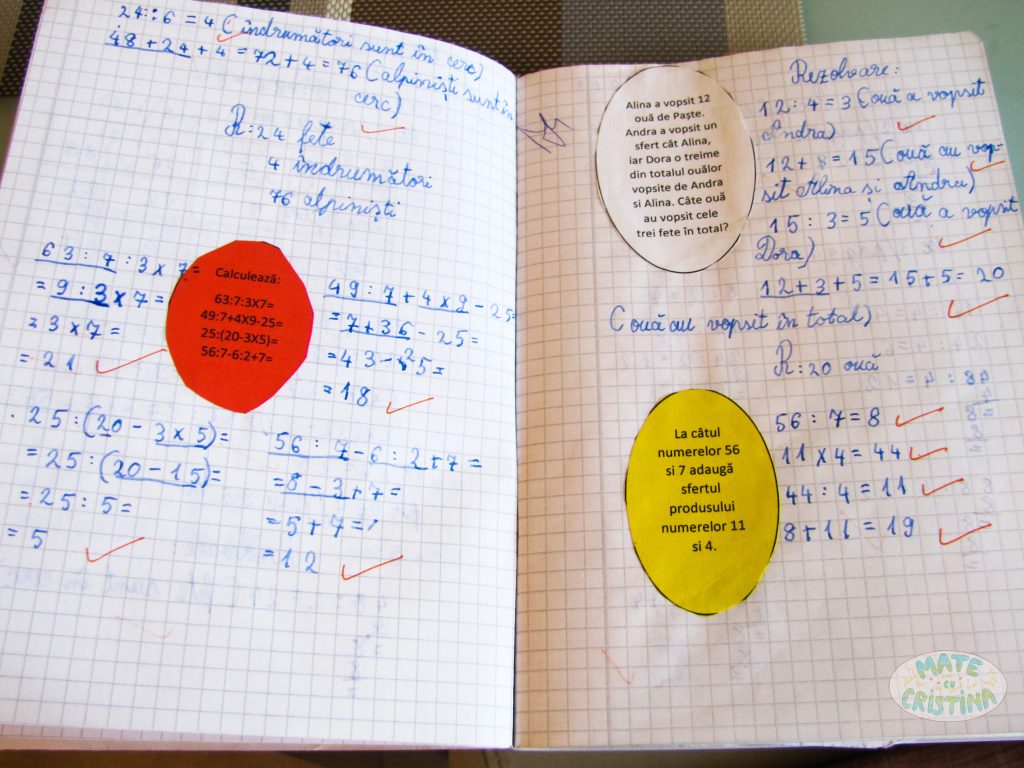 24:6 = 4 (îndrumători sunt în cerc)
48 + 24 + 4 = 72 + 4 = 76 (alpiniști sunt în
cerc)
R: 24 fete
4 îndrumători
76 alpiniști
63 : 7 : 3 x 7 =
= 9 : 3 x 7 =
= 3 x 7 =
= 21
Calculează:
63:7:3X7=
49:7+4X9-25=
25:(20-3X5)=
56:7-6:2+7=
49 : 7 + 4 x 9 - 25=
= 7 + 36 - 25 =
= 43 - 25 =
= 18
25 : (20 - 3 x 5) =
= 25 : (20 - 15) =
= 25 : 5 =
= 5
56 : 7 - 6 : 2 + 7 =
= 8 - 3 + 7 =
= 5 + 7 =
= 12
Alina a vopsit 12
ouă de Paște.
Andra a vopsit un
sfert cât Alina,
iar Dora o treime
din totalul ouălor
vopsite de Andra
si Alina. Câte ouă
au vopsit cele
trei fete în total?
Rezolvare:
12 : 4 = 3 (ouă a vopsit
Andra)
12 + = 15 (ouă au vop-
sit Alina și Andra)
15 : 3 = 5 (ouă a vopsit
Dora)
12 + 3 + 5 = 15 + 5 = 20
(ouă au vopsit în total)
R: 20 ouă
La câtul
numerelor 56
si 7 adaugă
sfertul
produsului
numerelor 11
si 4.
56 : 7 = 8
11 x 4 = 44
44 : 4 = 11
8 + 11 = 19
MATE
cu
CRISTINA